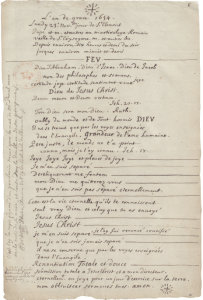 L'an de grace 1654
Lundy 23e Nov.bre jour de St Clement
Pape et m. et autres au martirologe Romain
veille de St Crysogone m. et autres &c
Depuis environ dix heures et demi du soir
jusques environ minuit et demi
FEV
Dieu d'Abraham. Dieu d'Isaac. Dieu de Jacob
non des philosophes et savans
certitude joye certitude sentiment joye
Dieu de Jesus Christ.
Deum meum et Deum vestrum.
Jeh. 20. 17.
Ton Dieu sera mon Dieu. Ruth.
oubly du monde et de tout hormis DIEV
l'Evangile. Grandeur de l'ame humaine.
Pere juste, le monde ne t'a point
connu, mais je t'ay connu. Jeh. 17.
Joye Joye Joye et pleurs de joye
Je m'en suis separé
Dereliquerunt me fontem
mon Dieu me quitterez vous
que je n'en sois pas separé eternellement.
Cette est la vie eternelle qu'ils te connoissent
seul vray Dieu et celuy que tu as envoyé
Jesus Christ
Jesus Christ
je m'en suis separé
que je n'en sois jamais separé
il ne se conserve que par les voyes enseignées
dans l'Evangile.
Renontiation Totale et douce
soumission totale a Jesus Christ et a mon directeur.
eternellem.t en joye pour un jour d'exercice sur la terre.
non obliviscar sermones tuos. amen.